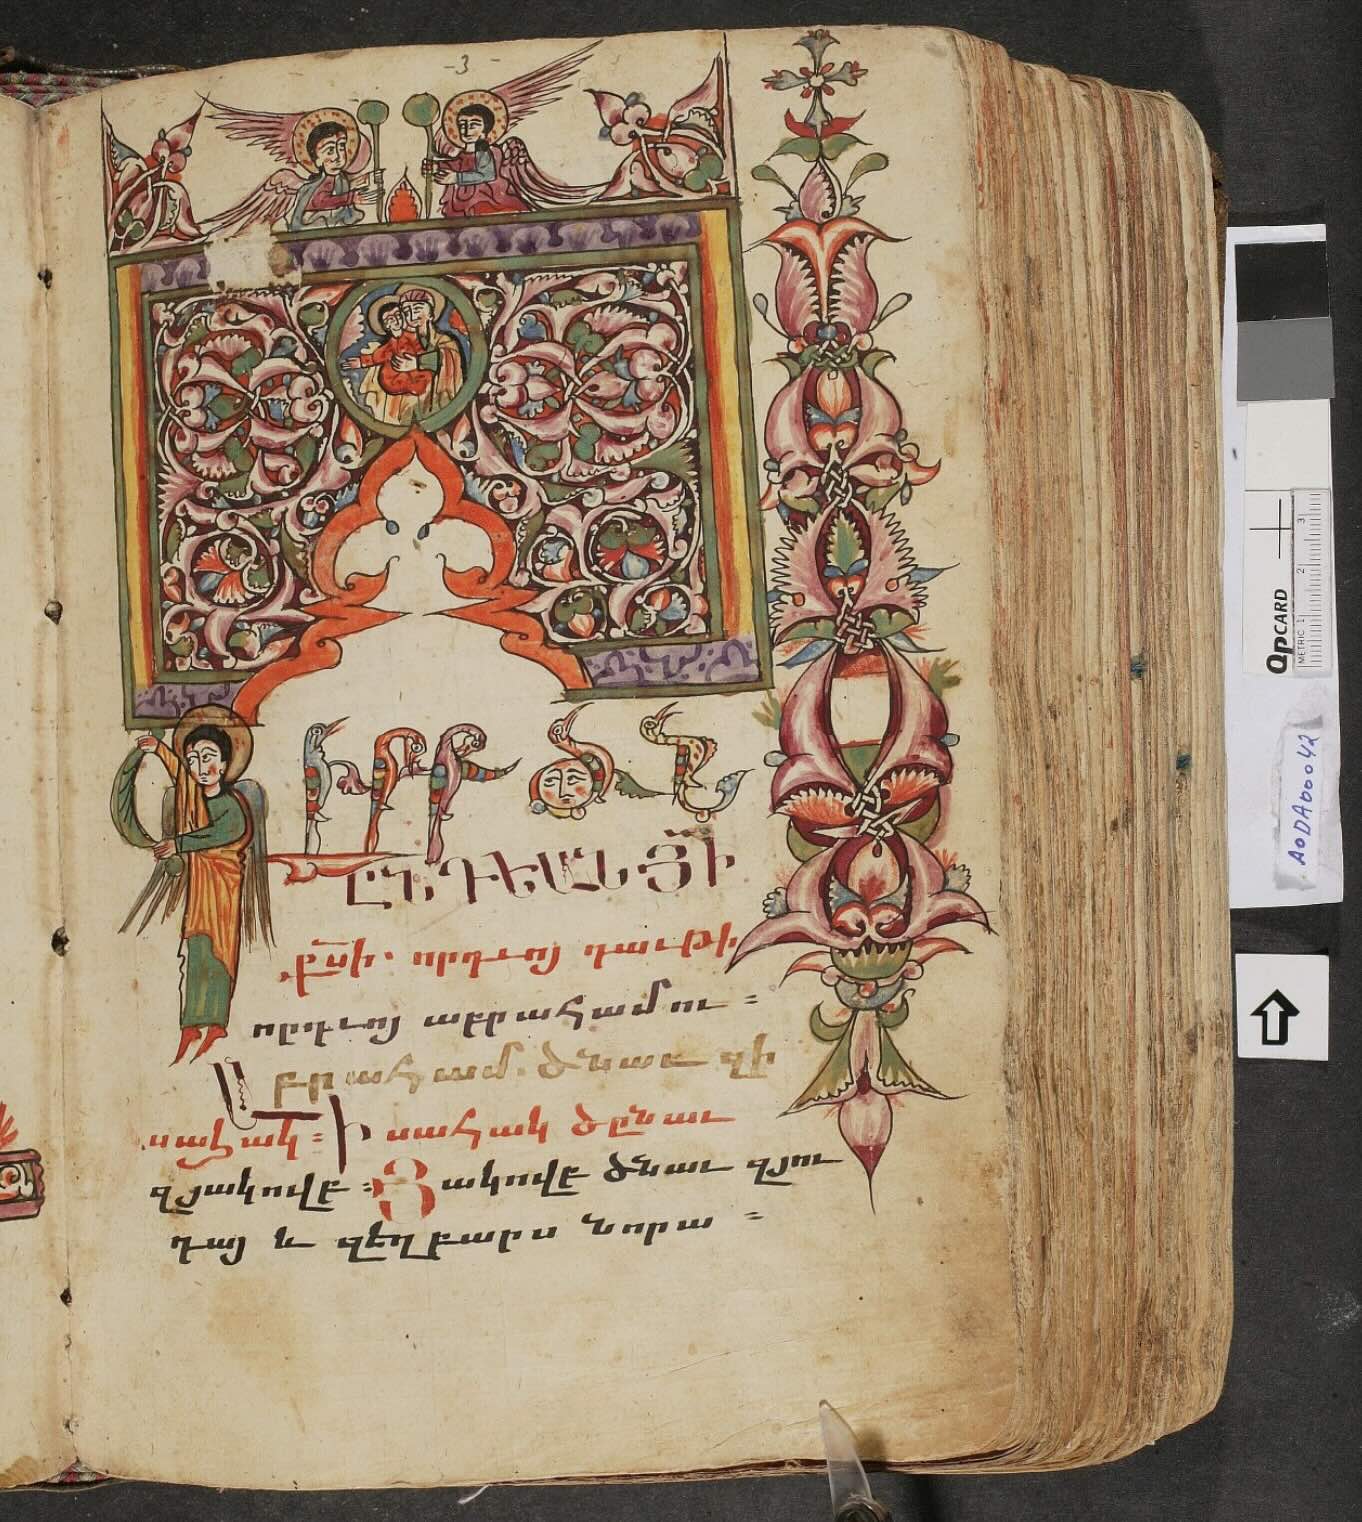 -3-
ԳԻՐՔ ԾՆ
ԸՆԴԵԱՆ ՅԻ
քսի. որդւոյ դաւթի
որդւոյ աբրահամու ։
Աբրահամ. ծնաւ զի
սահակ ։ Իսահակ ծընաւ
զյակովբ ։ Յակովբ ծնաւ զյու
դայ և զեղբարս նորա ։
QPCARD
METRIC 1 2 3
AODA00042